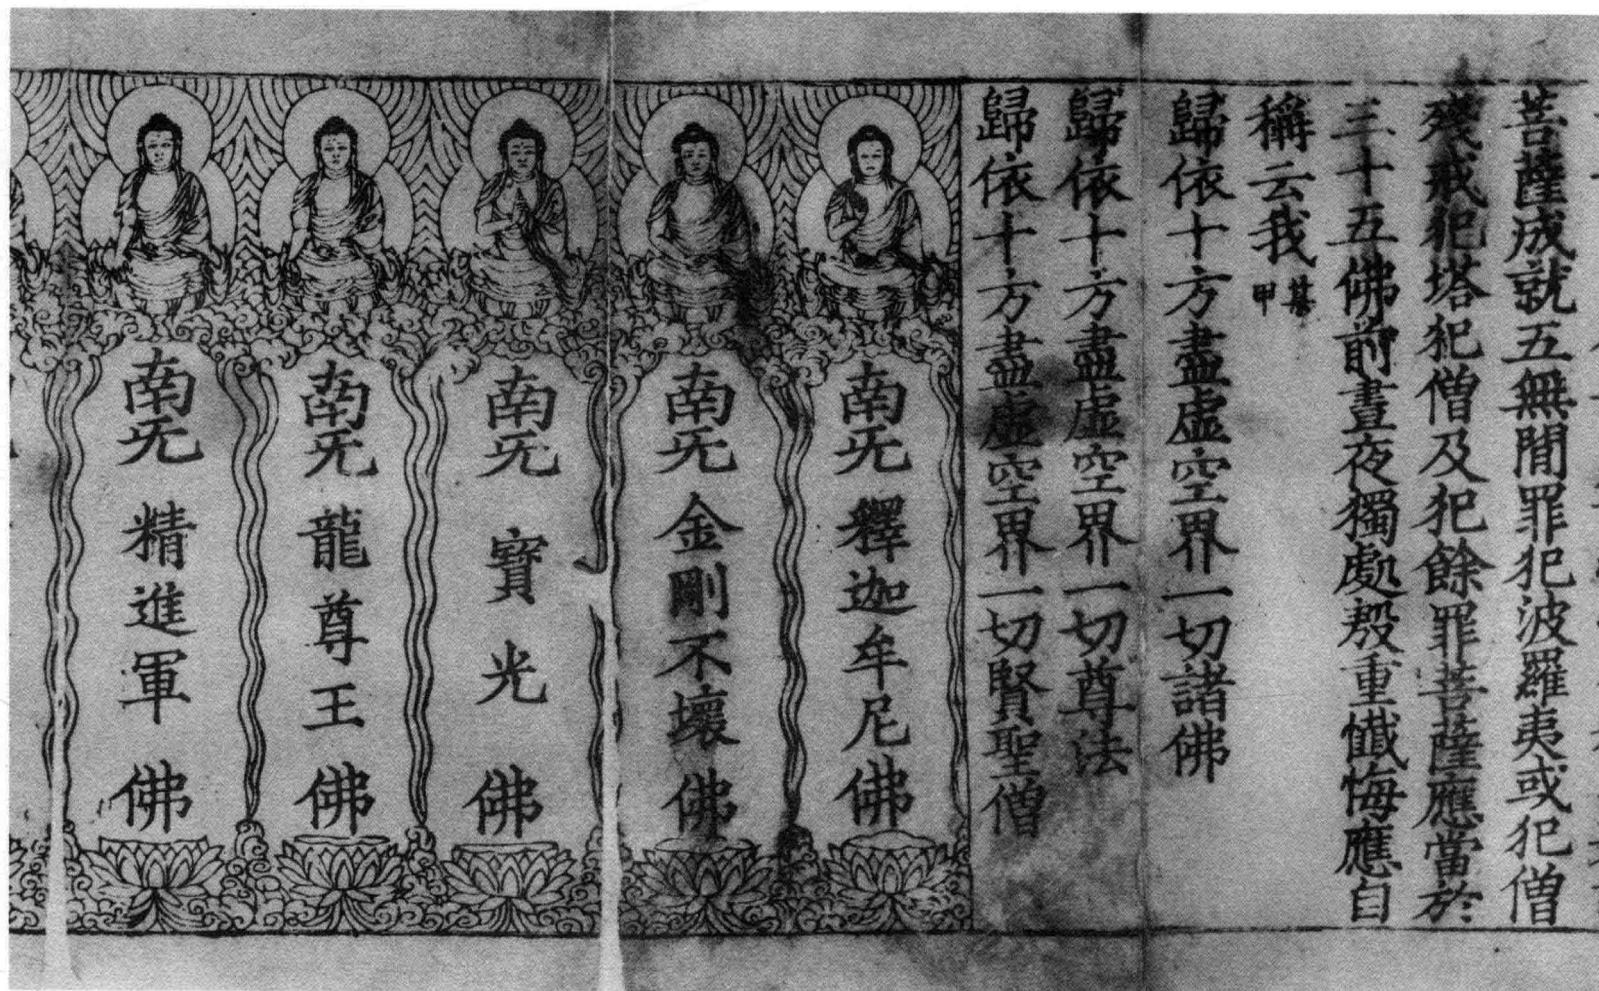 菩薩成就五無閒罪犯波羅夷或犯僧
殘戒犯塔犯僧及犯餘罪菩薩應當於
三十五佛前晝夜獨處殷重懺悔應自
稱云我某甲
歸依十方盡虛空界一切諸佛
歸依十方盡虛空界一切尊法
歸依十方盡虛空界一切賢聖僧
南无釋迦牟尼佛
南无金剛不壞佛
南无寳光佛
南无龍尊王佛
南无精進軍佛